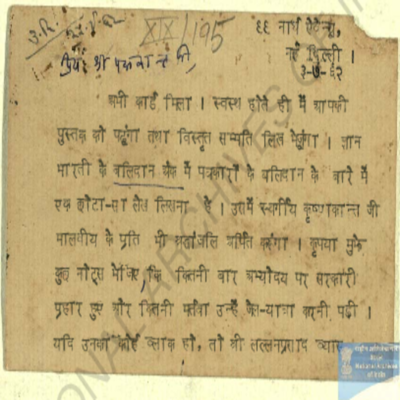 XIX/195
९९ नार्थ ऐवेन्यू,
नई दिल्ली ।
३-७-६२
प्रिय श्री पद्मकान्त जी
अभी कार्ड मिला । स्वस्थ होते ही मैं आपकी
पुस्तक को पढूंगा तथा विस्तृत सम्मति लिख भेजूंगा । ज्ञान
भारती के बलिदान अंक में पत्रकारों के बलिदान के बारे में
एक छोटा-सा लेख लिखना है । उसमें स्वर्गीय कृष्णकान्त जी
मालवीय के प्रति भी श्रद्धांजलि अर्पित करूंगा । कृपया मुझे
कुछ नोट्स भेजिए कि कितनी बार अभ्योदय पर सरकारी
प्रहार हुए और कितनी मर्तबा उन्हें जेल-यात्रा करनी पड़ी ।
यदि उनका कोई ब्लाक हो, तो श्री लल्लनप्रसाद व्यास